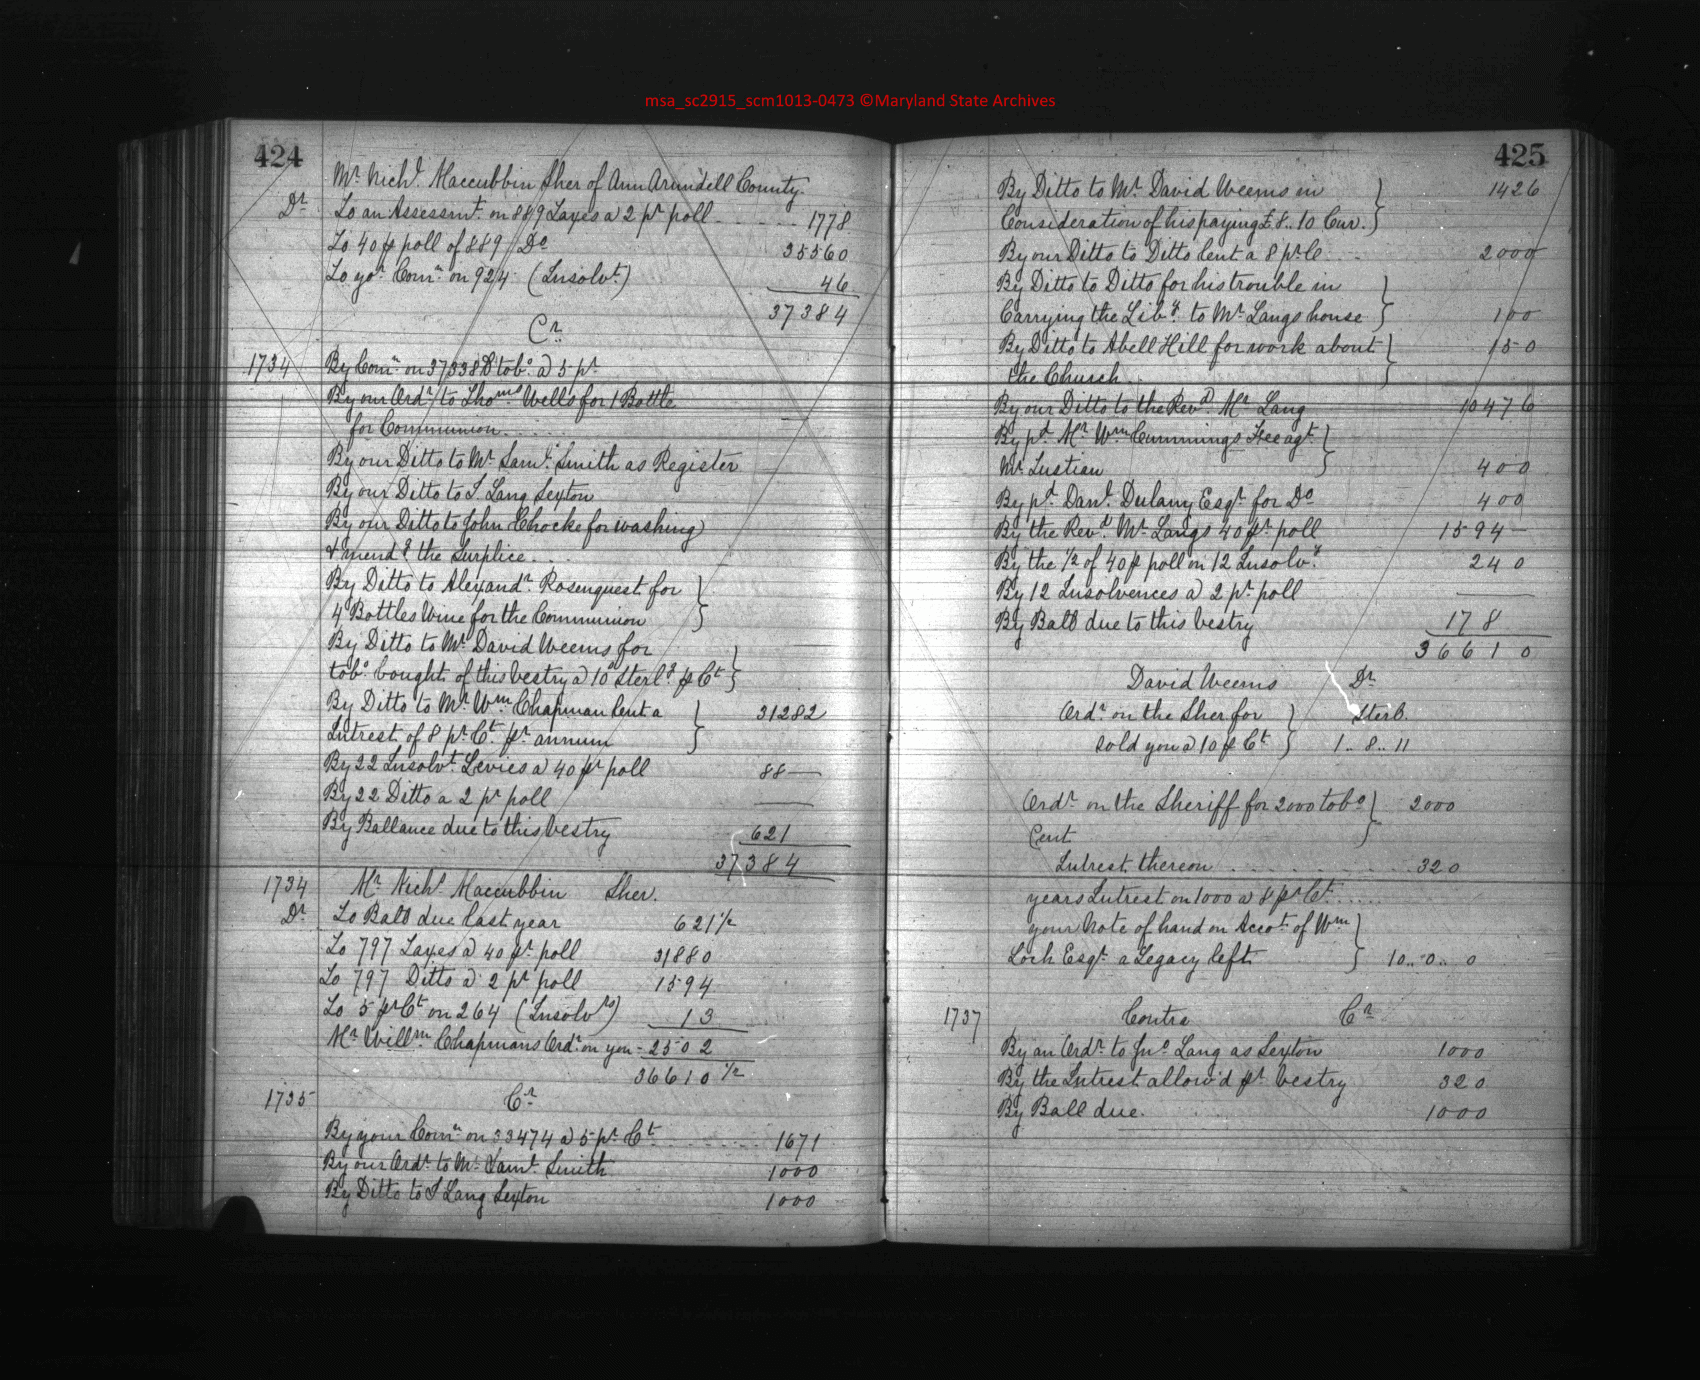 msa_sc2915_scm1013-0473 ©Maryland State Archives
424
Mr Nichd. Maccubbin Sher of Ann Arundell County
Dr. To an Assessmt. on 889 Taxes a 2 pr poll 1778
To 40 ℔ poll of 889 Do 35560
To yor. Comn. on 924 (Insolvt.) 46
37384
Cr.
1734 By Comn. on 37338 tobo. a 5 pr
By our Ordr. to Thoms. Wells for 1 Bottle
for Communion
By our Ditto to Mr Saml. Smith as Register
By our Ditto to J. Lang Sexton
By our Ditto to John Chocke for washing
& mendg. the Surplice
By Ditto to Alexandr. Rosenquest for
4 Bottles Wine for the Communion
By Ditto to Mr. David Weems for
tobo. bought of this vestry a 10d Sterlg. ℔ Ct
By Ditto to Mr Wm Chapman lent a 31282
Intrest of 8 pr Ct. pr. annum
By 22 Insolvt. Levies a 40 pr poll 88—
By 22 Ditto a 2 pr poll —
By Ballance due to this Vestry 621
37384
1734 Mr Nichs Maccubbin Sher.
Dr. To Ball due last year 621½
To 797 Taxes a 40 pr. poll 31880
To 797 Ditto a 2 pr poll 1594
To 5 pr Ct on 264 (Insolvrs) 13
Mr Willm. Chapmans Ordr. on you - 2502
36610½
1735 Cr.
By your Comn. on 33474 a 5 pr Ct 1671
By our Ordr. to Mr Saml. Smith 1000
By Ditto to J Lang Sexton 1000
425
By Ditto to Mr. David Weems in 1426
Consideration of his paying £8..10 Cur.
By our Ditto to Ditto lent a 8 pr C 2000
By Ditto to Ditto for his trouble in
Carrying the Liby. to Mr. Langs house 100
By Ditto to Abell Hill for work about 150
the Church
By our Ditto to the Revd. Mr. Lang 10476
By pd. Mr Wm Cummings Fee agt.
Mr. Lustian 400
By pd Danl. Dulany Esqr. for Do 400
By the Revd. Mr. Langs 40 pr. poll 1594—
By the ½ of 40 ℔ poll on 12 Insolvs. 240
By 12 Insolvences a 2 pr. poll —
By Ball due to this vestry 178
36610
David Weems Dr.
Ordr. on the Sher. for Sterl.
sold you a 10 ℔ Ct 1..8..11
Ordr. on the Sheriff for 2000 tobo 2000
Cent
Intrest thereon 320
years Intrest on 1000 a 8 pr Ct.
your Note of hand on Accot. of Wm
Loch Esqr. a Legacy left 10..0..0
1737 Contra Cr.
By an Ordr. to Jno. Lang as Sexton 1000
By the Intrest allow'd pr. Vestry 320
By Ball due. 1000